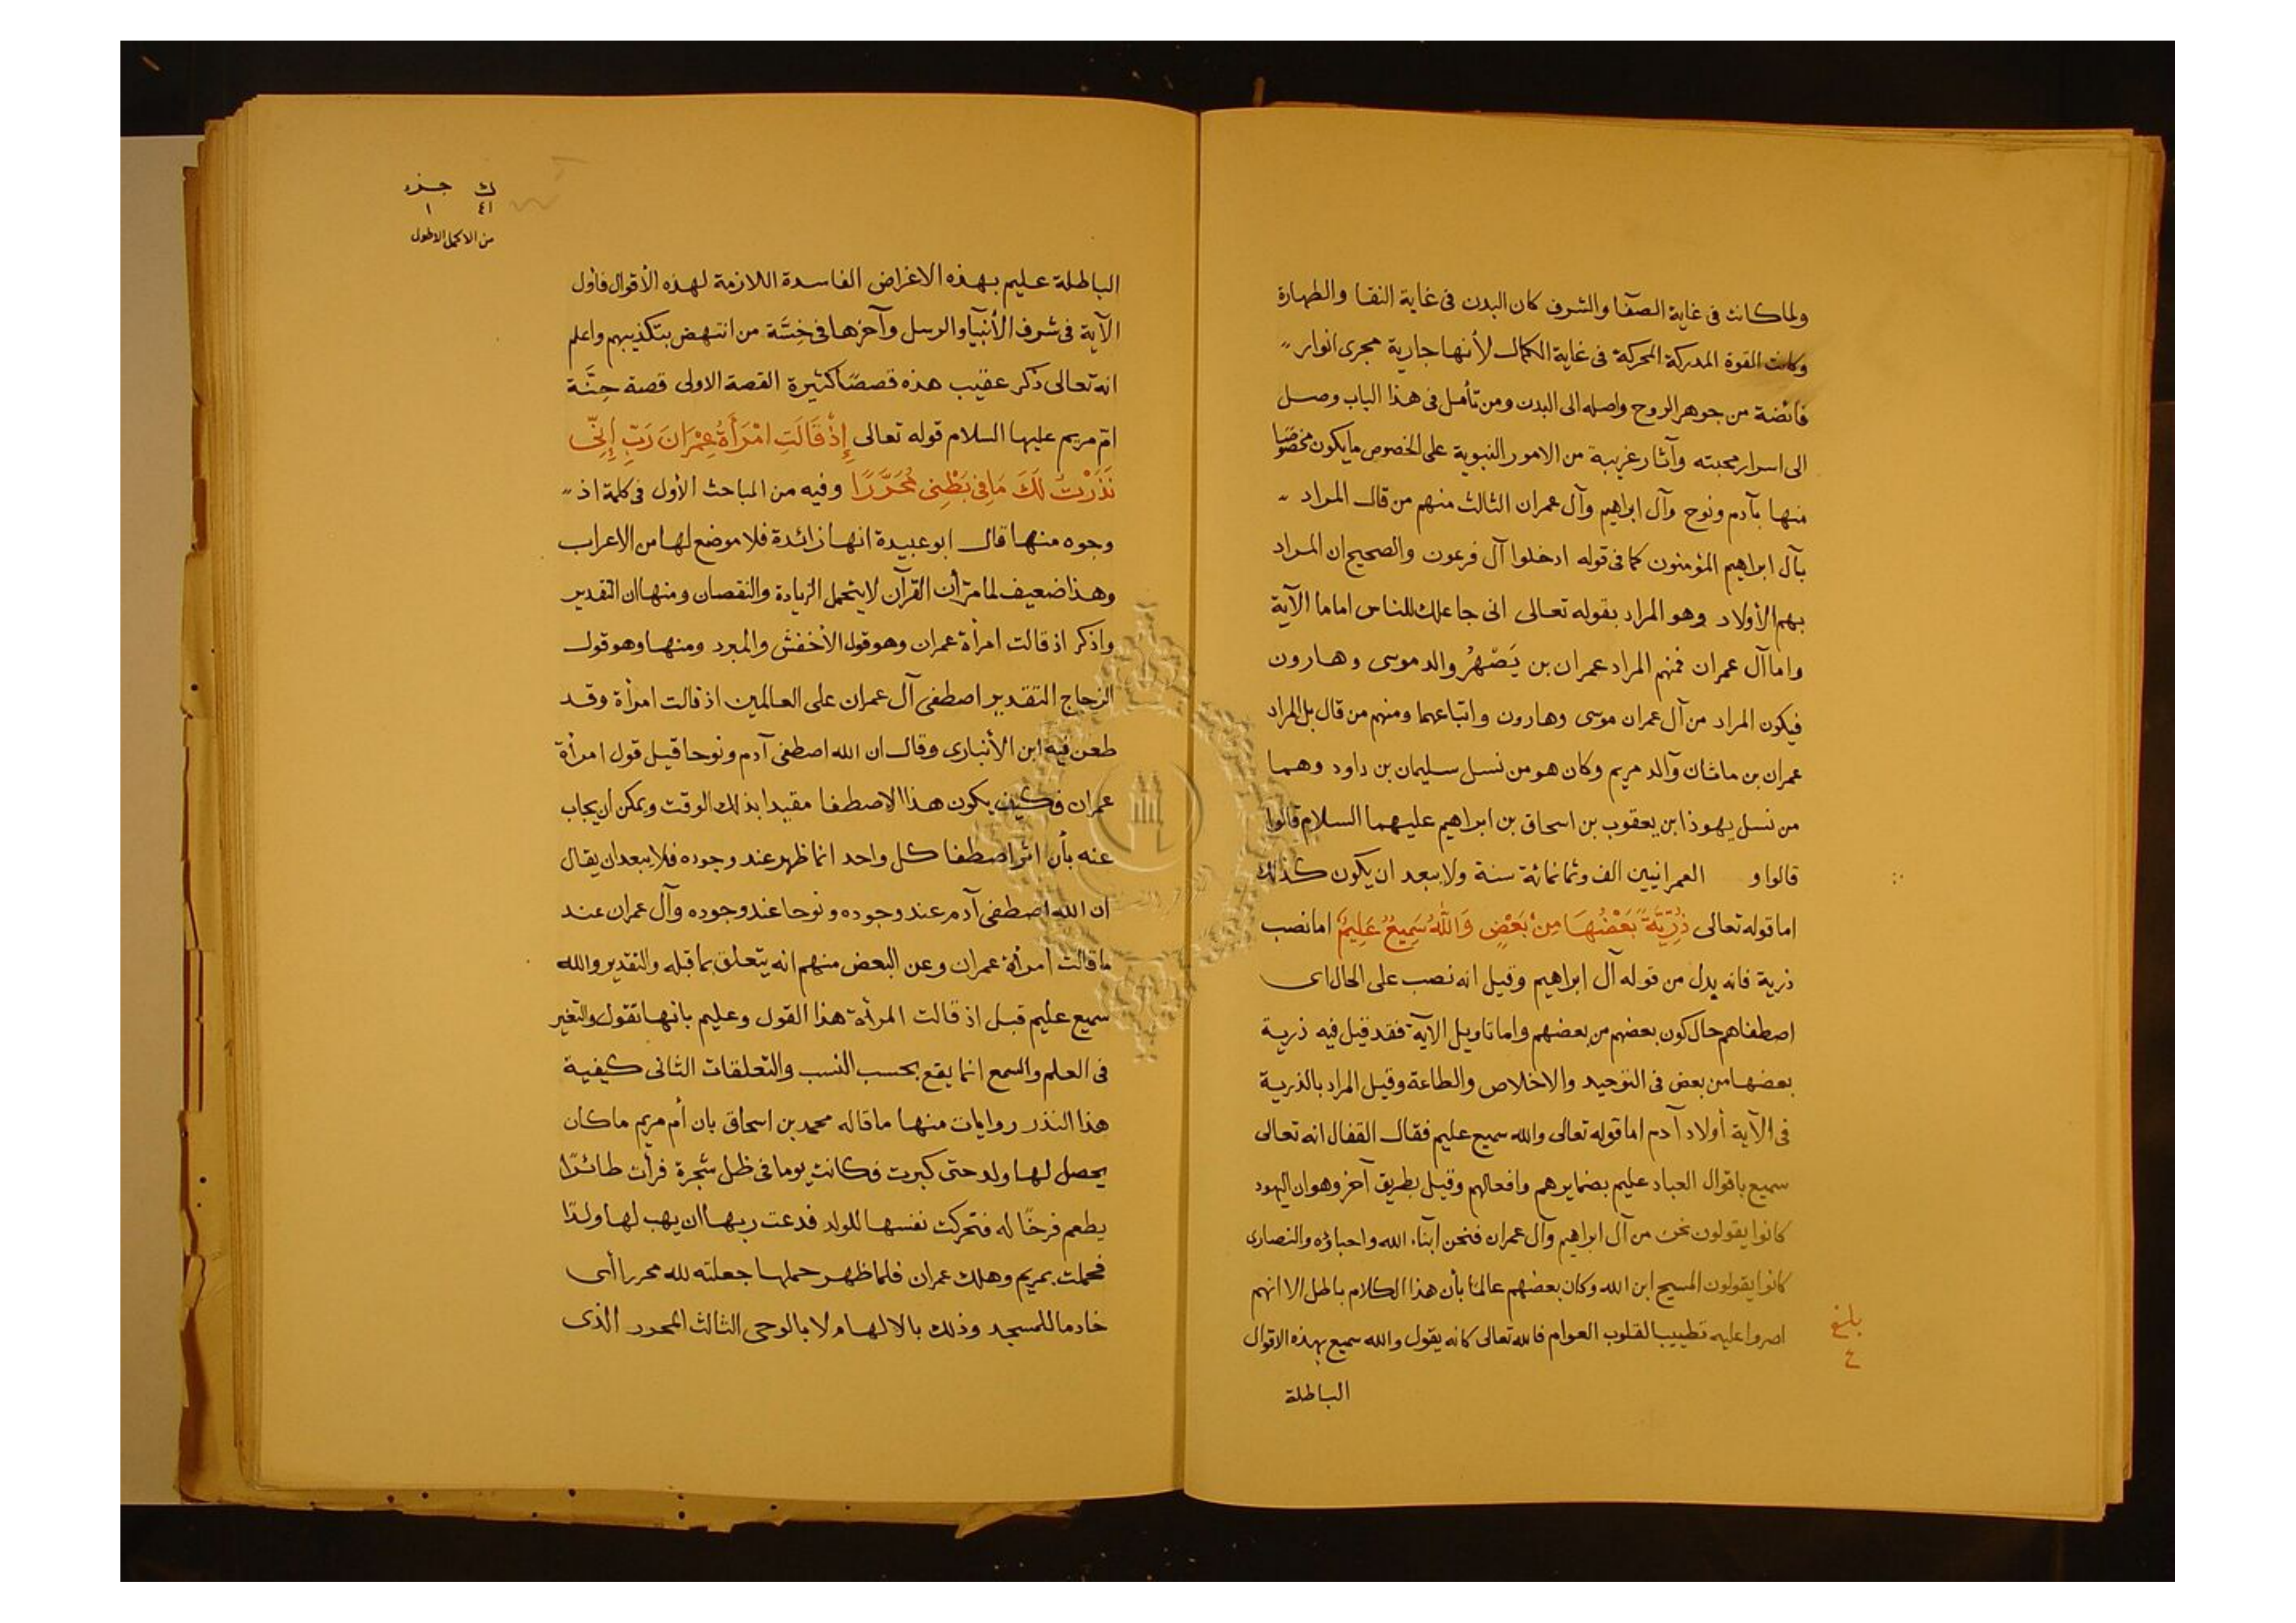 ولما كانت فى غاية الصفآ والشرف كان البدن فى غاية النقا والطهارة
وكانت القوة المدركة المحركة فى غاية الكمال لأنها جارية مجرى انوار
فائضة من جوهر الروح واصله الى البدن ومن تأمل فى هذا الباب وصل
الى اسرار محجبته وآثار غريبة من الامور النبوية على الخصوص ما يكون مخصوصا
منها بآدم ونوح وآل ابراهيم وآل عمران الثالث منهم من قال المراد
بآل ابراهيم المؤمنون كما فى قوله ادخلوا آل فرعون والصحيح ان المراد
بهم الأولاد وهو المراد بقوله تعالى انى جاعلك للناس اماما الآية
واما آل عمران فمنهم المراد عمران بن يَصْهُر والد موسى وهارون
فيكون المراد من آل عمران موسى وهارون واتباعهما ومنهم من قال بل المراد
عمران بن ماثان وآلد مريم وكان هو من نسل سليمان بن داود وهما
من نسل يهوذا بن يعقوب بن اسحاق بن ابراهيم عليهما السلام قالوا
قالوا و العمرانيين الف وثمانمائة سنة ولا يبعد ان يكون كذلك
اما قوله تعالى ذُرِّيَّةً بَعْضُهَا مِنْ بَعْضٍ وَاللَّهُ سَمِيعٌ عَلِيمٌ اما نصب
ذرية فانه بدل من قوله آل ابراهيم وقيل انه نصب على الحال اى
اصطفاهم حال كون بعضهم من بعضهم واما تاويل الآية فقد قيل فيه ذرية
بعضها من بعض فى التوحيد والاخلاص والطاعة وقيل المراد بالذرية
فى الآية أولاد آدم اما قوله تعالى والله سميع عليم فقال القفال انه تعالى
سميع باقوال العباد عليم بضمايرهم وافعالهم وقيل بطريق آخر وهو ان اليهود
كانوا يقولون نحن من آل ابراهيم وآل عمران فنحن ابنآء الله واحباؤه والنصارى
كانوا يقولون المسيح ابن الله وكان بعضهم عالما بأن هذا الكلام باطل الا انهم
اصروا عليه تطييبا لقلوب العوام فالله تعالى كانه يقول والله سميع بهذه الاقوال
الباطلة
بلغ
ع
ك جزء
٤١ ١
من الاكمل الاطول
الباطلة عليم بهذه الاغراض الفاسدة اللازمة لهذه الأقوال فأول
الآية فى شرف الأنبيآ والرسل وآخرها فى خِسَّة من انتهض بتكذيبهم واعلم
انه تعالى ذكر عقيب هذه قصصًا كثيرة القصة الاولى قصة حِنَّة
امّ مريم عليها السلام قوله تعالى إِذْ قَالَتِ امْرَأَةُ عِمْرَانَ رَبِّ إِنِّى
نَذَرْتُ لَكَ مَا فِى بَطْنِى مُحَرَّرًا وفيه من المباحث الأول فى كلمة اذ
وجوه منها قال ابو عبيدة انها زائدة فلا موضع لها من الاعراب
وهذا ضعيف لما مرّ أن القرآن لا يتحمل الزيادة والنقصان ومنها ان التقدير
واذكر اذ قالت امرأة عمران وهو قول الأخفش والمبرد ومنها وهو قول
الزجاج التقدير اصطفى آل عمران على العالمين اذ قالت امرأة وقد
طعن فيه ابن الأنبارى وقال ان الله اصطفى آدم ونوحا قبل قول امرأة
عمران فكيف يكون هذا الاصطفا مقيدا بذلك الوقت ويمكن أن يجاب
عنه بأن اثر اصطفا كل واحد انما ظهر عند وجوده فلا يبعد ان يقال
ان الله اصطفى آدم عند وجوده ونوحا عند وجوده وآل عمران عند
ما قالت امرأة عمران وعن البعض منهم انه يتعلق بما قبله والتقدير والله
سميع عليم قبل اذ قالت المرأة هذا القول وعليم بانها تقول والتغير
فى العلم والسمع انما يقع بحسب النسب والتعلقات الثانى كيفية
هذا النذر روايات منها ما قاله محمد بن اسحاق بان أم مريم ما كان
يحصل لها ولد حتى كبرت فكانت يوما فى ظل شجرة فرأت طائرًا
يطعم فرخًا له فتحركت نفسها للولد فدعت ربها ان يهب لها ولدًا
فحملت بمريم وهلك عمران فلما ظهر حملها جعلته لله محررا أى
خادما للمسجد وذلك بالالهام لا بالوحى الثالث المحرر الذى